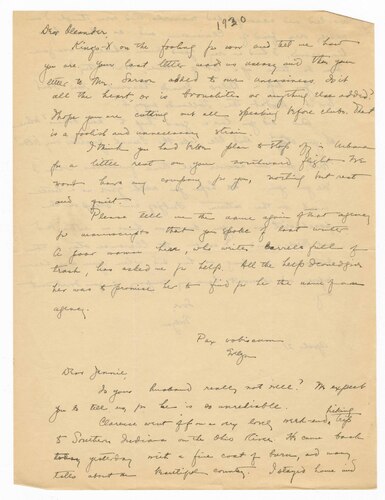 1930
Dear Oleander,
Kings-X on the fooling for now and tell me how
you are. Your last letter made us uneasy and then your
letter to Mr. Larson added to our uneasiness. Is it
all the heart, or is bronchitis or anything else added?
I hope you are cutting out all speaking before clubs. That
is a foolish and unnecessary strain.
I think you had better plan to stop off in Urbana
for a little rest on your northward flight. We
wont have any company for you, nothing but rest
and quiet.
Please tell me the name again of that agency
for manuscripts that you spoke of last winter.
A poor woman here, who writes barrels full of
trash, has asked me for help. All the help I could give
her was to promise her to find for her the name of an
agency.
Pax vobiscum
Dear Jennie
Is your husband really not well? We expect
you to tell us, for he is so unreliable.
Clarence went off on a very lovely week-end hiking trip
to Southern Indiana on the Ohio River. He came back
yesterday with a fine coat of burn, and many
tales about a beautiful country. I stayed home and